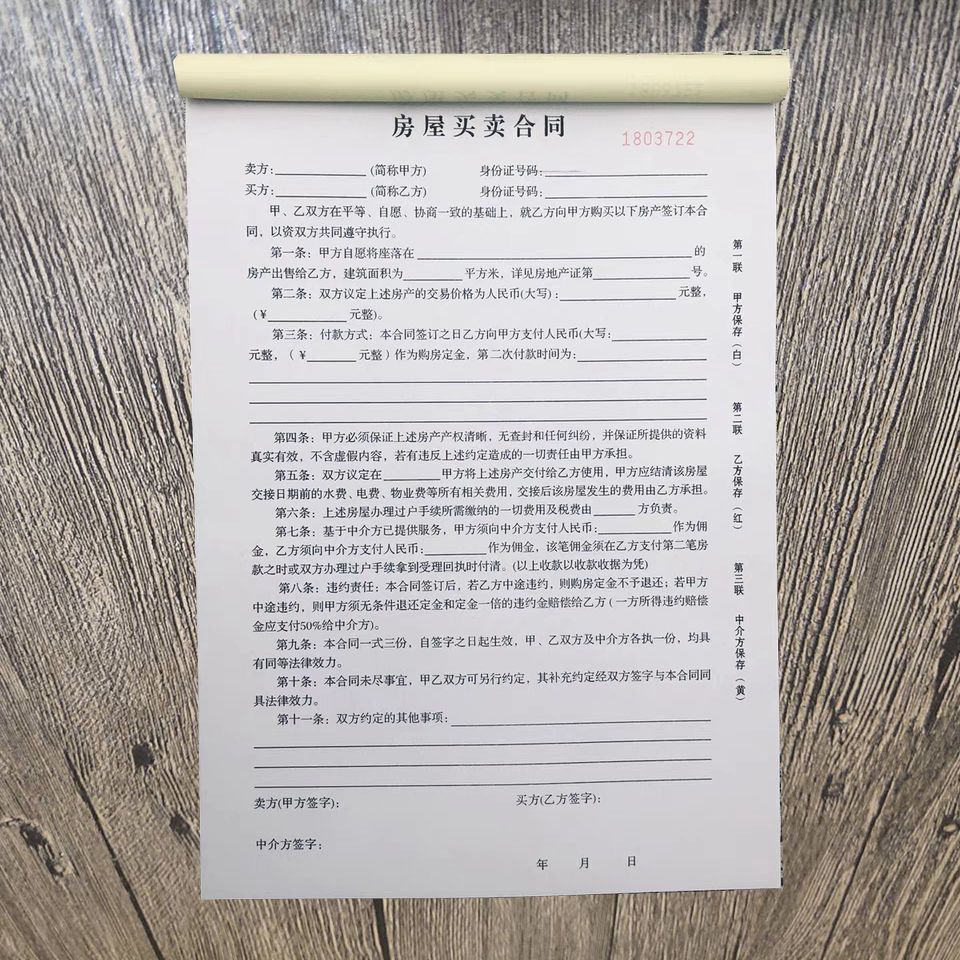 房屋买卖合同
1803722
卖方:____________(简称甲方) 身份证号码:____________
买方:____________(简称乙方) 身份证号码:____________
甲、乙双方在平等、自愿、协商一致的基础上，就乙方向甲方购买以下房产签订本合
同，以资双方共同遵守执行。
第一条：甲方自愿将座落在____________的
房产出售给乙方，建筑面积为________平方米，详见房地产证第____________号。
第二条：双方议定上述房产的交易价格为人民币(大写)：____________元整，
(￥____________元整)。
第三条：付款方式：本合同签订之日乙方向甲方支付人民币(大写:____________
元整，（￥________元整）作为购房定金，第二次付款时间为:____________
第四条：甲方必须保证上述房产产权清晰，无查封和任何纠纷，并保证所提供的资料
真实有效，不含虚假内容，若有违反上述约定造成的一切责任由甲方承担。
第五条：双方议定在________甲方将上述房产交付给乙方使用，甲方应结清该房屋
交接日期前的水费、电费、物业费等所有相关费用，交接后该房屋发生的费用由乙方承担。
第六条：上述房屋办理过户手续所需缴纳的一切费用及税费由______方负责。
第七条：基于中介方已提供服务，甲方须向中介方支付人民币:____________作为佣
金，乙方须向中介方支付人民币:__________作为佣金，该笔佣金须在乙方支付第二笔房
款之时或双方办理过户手续拿到受理回执时付清。(以上收款以收款收据为凭)
第八条：违约责任：本合同签订后，若乙方中途违约，则购房定金不予退还；若甲方
中途违约，则甲方须无条件退还定金和定金一倍的违约金赔偿给乙方(一方所得违约赔偿
金应支付50%给中介方)。
第九条：本合同一式三份，自签字之日起生效，甲、乙双方及中介方各执一份，均具
有同等法律效力。
第十条：本合同未尽事宜，甲乙双方可另行约定，其补充约定经双方签字与本合同同
具法律效力。
第十一条：双方约定的其他事项:____________
卖方(甲方签字): 买方(乙方签字):
中介方签字：
年 月 日
第一联 甲方保存（白）
第二联 乙方保存（红）
第三联 中介方保存（黄）